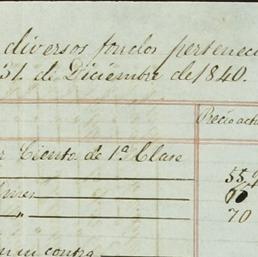 diversos fondos pertenec
31. de Diciembre de 1840.
Precio act
Ciento de 1ª Clase
55
70
en contra